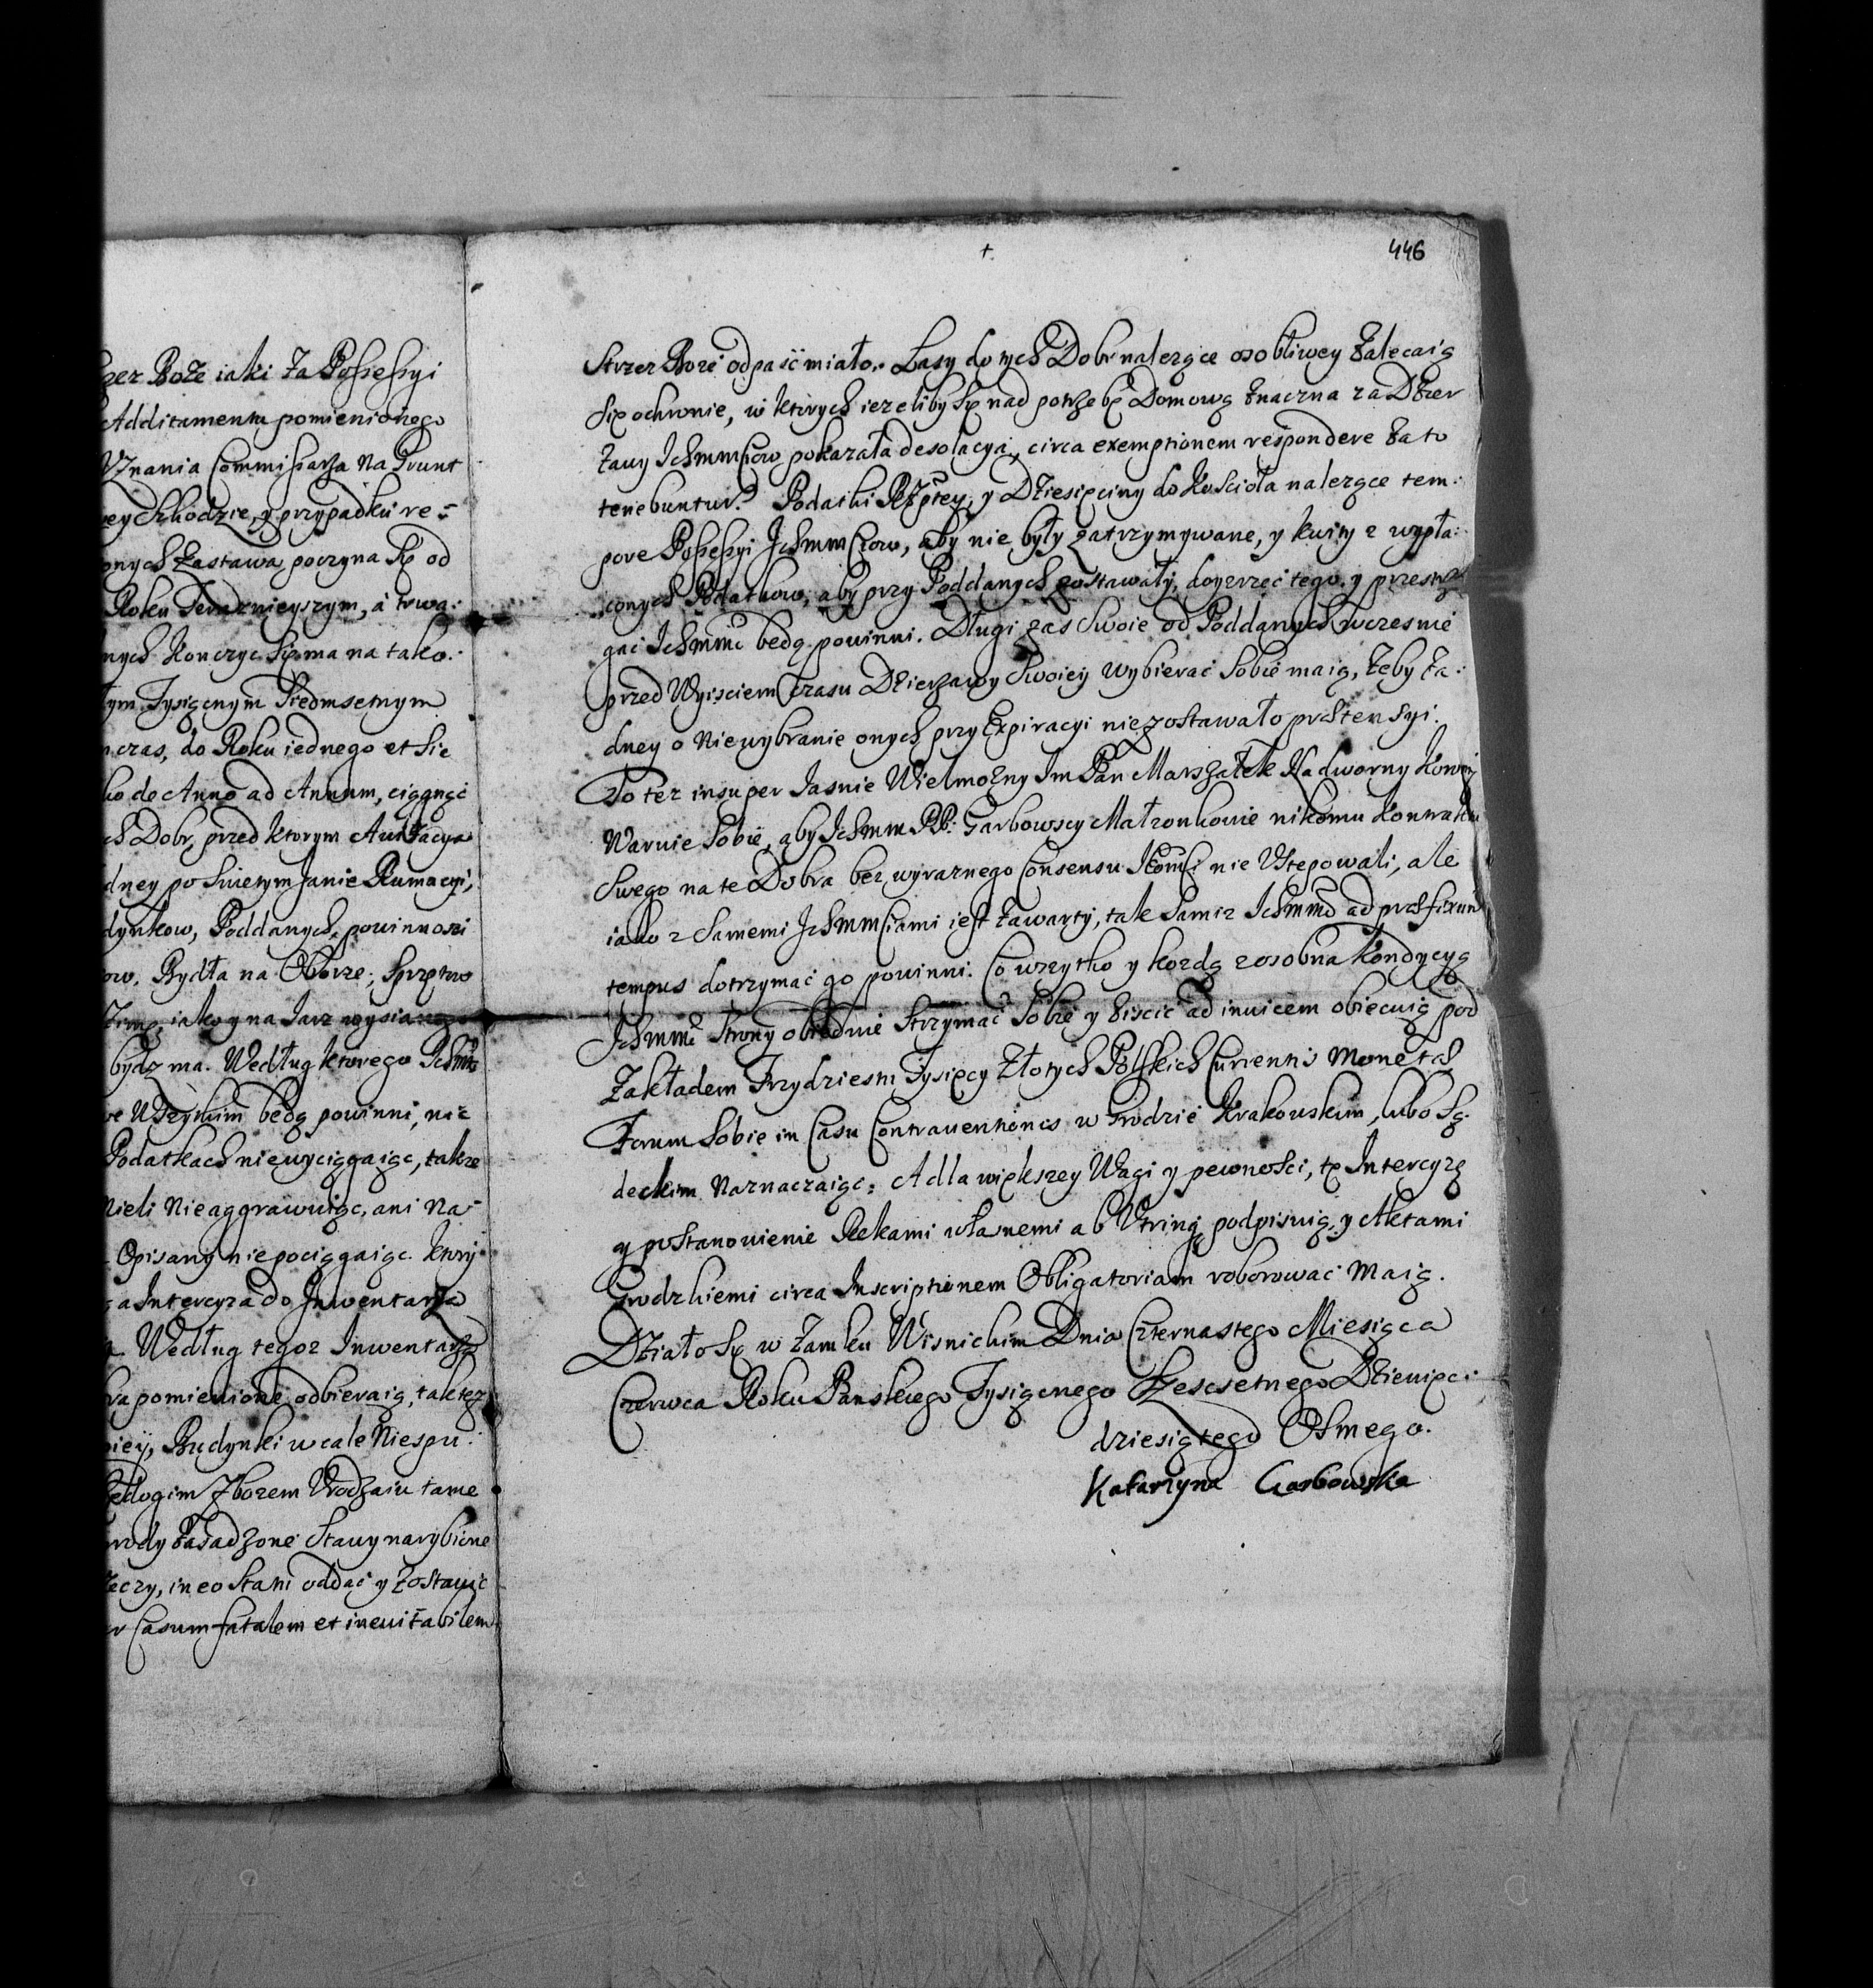 zer Boże iaki za Possessyi
Additamentu pomienionego
Vznania Commissarza na Grunt
ney Szkodzie, y przypadku re=
onych Zastawa poczyna Się od
Roku Teraznieyszym, á trwa:
nych Konczyc Się ma na tako:
tym Tysiącnym Siedmsetnym
nczas, do Roku iednego et sic
ko de Anno ad Annum, ciągnąć
ch Dobr, przed ktorym Auktacya
dney po Swietym Janie Rumacyi,
dynkow, Poddanych, powinnosci
ow. Bydła na Oborze, Sprzętow
Zimę, iako y na Jarz wysianego
bydz ma. Według ktorego Ichmc
we Wszytkim będą powinni, nic
Podatkach niewyciągaiąc, takze
nieli nieaggrawuiąc, ani na-
Opisany niepociągaiąc. Ktory
ta Intercyza do Inwentarza
Według tegoz Inwentarza
bra pomienione odbieraią, taktez
niey, Budynki wcale Niespu:
Błogim Zborem Vrodzaiu tame
rody Zasadzone Stawy narybione
Rzeczy, in eo Statu oddać y Zostawić
er Casum fatalem et ineuitabilem
+
446
Strzez Boże odpaść miało. Lasy do tych Dobr nalezące osobliwey Zalecaią
Się ochronie, w ktorych iezeliby Się nad potrzebę Domową Znaczna za Dzier
żawy Ichmmciow pokazała desolacya, circa exemptionem respondere Za to
tenebuntur. Podatki Rzptey, y Dziesięciny do Kościoła nalezące tem:
pore Possessyi Ichmmciow, aby nie były zatrzymywane, y kwity z wypła:
conych Podatkow, aby przy Poddanych zostawały, doyzrzeć tego y przestrze
gać Ichmmc będą powinni. Długi zas Swoie od Poddanych wczesnie
przed Wyisciem Czasu Dzierzawy Swoiey wybierać Sobie maią, żeby ża:
dney o niewybranie onych przy Expiracyi niezostawało prætensyi.
To tez insuper Jasnie Wielmożny Jm Pan Marszałek Nadworny Koronny
Waruie Sobie, aby Ichmm PP: Garbowscy Małzonkowie nikomu Kontraktu
Swego na te Dobra bez wyraznego Consensu Jego Mci nie Vstępowali, ale
iako z Samemi Ichmmciami iest Zawarty, tak Sami z Ichmmc ad præfixum
tempus dotrzymać go powinni. Co wszytko y kozdą z osobna Kondycyą
Ichmmc Strony obiedwie Strzymać Sobie y Ziscić ad inuicem obiecuią pod
Zakładem Trzydziestu Tysięcy Złotych Polskich Currentis Monetæ
Forum Sobie in Casu Contrauentionis w Grodzie Krakowskim, lubo Są:
deckim Naznaczaiąc: A dla większey Wagi y pewności, tę Intercyzę
y postanowienie Rękami własnemi ab Vtrinq podpisuią, y Aktami
Grodzkiemi circa Inscriptionem Obligatoriam roborować Maią.
Działo Się w Zamku Wisnickim Dnia Czternastego Miesiąca
Czerwca Roku Panskiego Tysiącnego Szescsetnego Dziewięć:
dziesiątego Osmego.
Katarzyna Garbowska